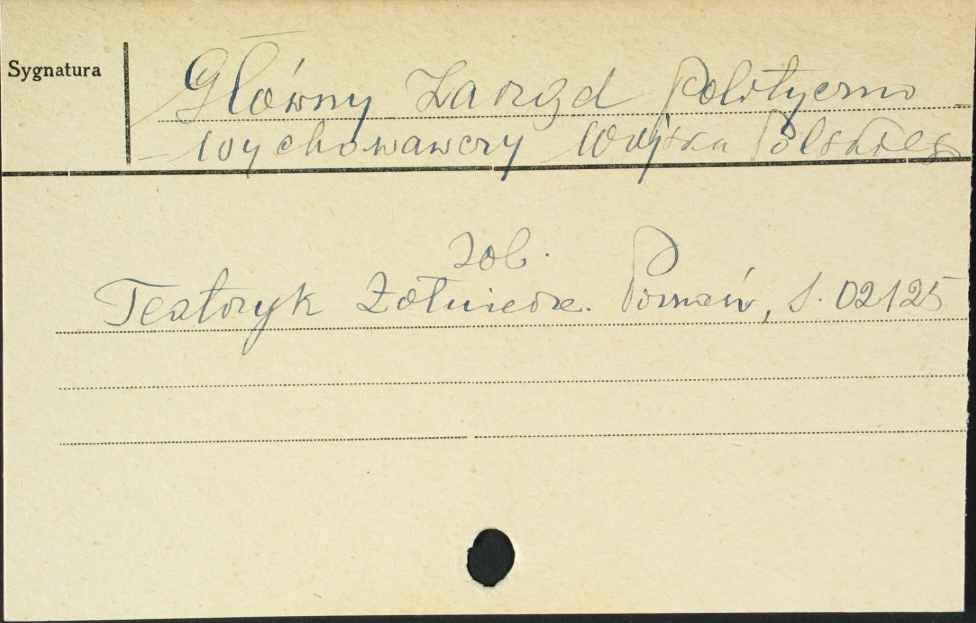 Sygnatura
Główny Zarząd Polityczno
wychowawczy Wojska Polskiego
zob.
Teatrzyk Żołnierza. Poznań, S. 02125